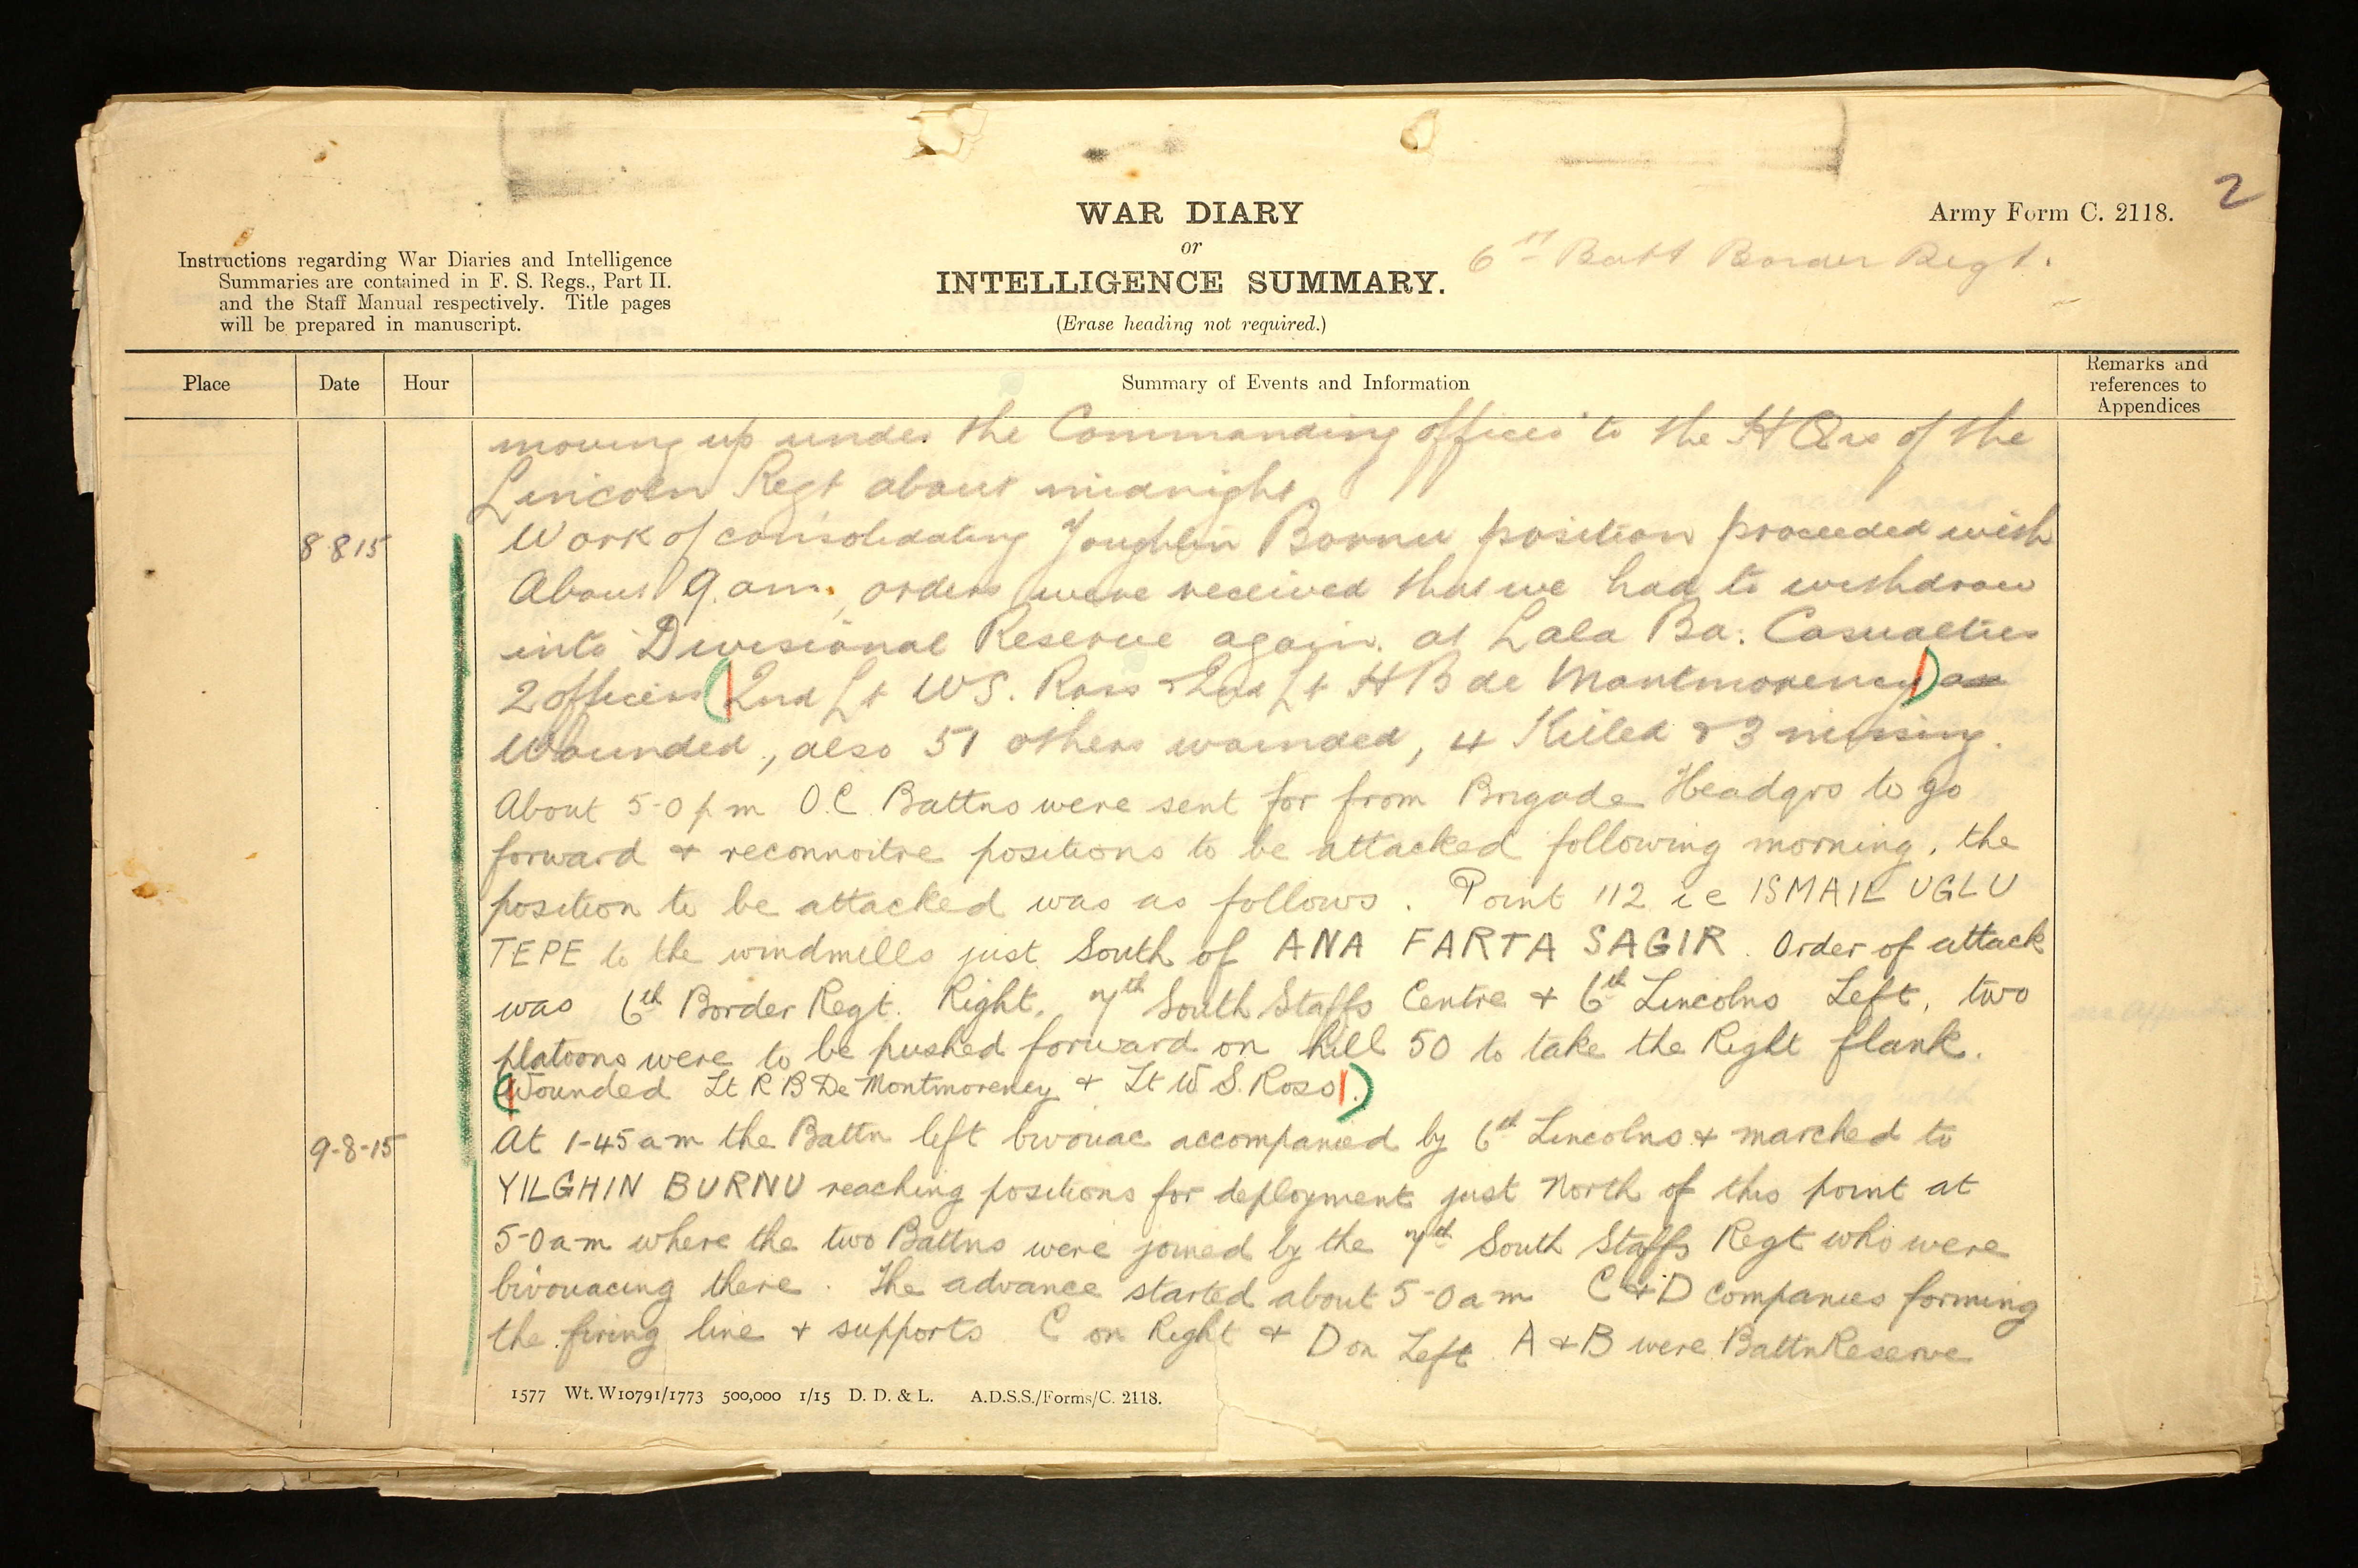 2
WAR DIARY
or
INTELLIGENCE SUMMARY.
(Erase heading not required.)
Army Form C. 2118.
6th Batt Border Regt.
Instructions regarding War Diaries and Intelligence
Summaries are contained in F. S. Regs., Part II.
and the Staff Manual respectively. Title pages
will be prepared in manuscript.
Place Date Hour Summary of Events and Information
Remarks and
references to
Appendices
moving up under the Commanding officer to the HQrs of the
Lincoln Regt about midnight
8 8 15 Work of consolidating Youghlin Bornu position proceeded with
About 9.am. orders were received that we had to withdraw
into Divisional Reserve again. at Lala Ba. Casualties
2 officers (2nd Lt WS. Ross & 2nd Lt H B de Montmorency)
Wounded, also 51 others wounded, 4 Killed & 3 missing.
About 5-0 pm O.C. Battns were sent for from Brigade Headqrs to go
forward & reconnoitre positions to be attacked following morning, the
position to be attacked was as follows. Point 112 ie ISMAIL UGLU
TEPE to the windmills just South of ANA FARTA SAGIR. Order of attack
was 6th Border Regt. Right, 7th South Staffs Centre & 6th Lincolns Left, two
platoons were to be pushed forward on hill 50 to take the Right flank.
(Wounded Lt R B De Montmorency & Lt W S. Ross.)
9-8-15 At 1-45 am the Battn left bivouac accompanied by 6th Lincolns & marched to
YILGHIN BURNU reaching positions for deployment just North of this point at
5-0 am where the two Battns were joined by the 7th South Staffs Regt who were
bivouacing there. The advance started about 5-0 am C & D Companies forming
the firing line & supports C on Right & D on Left A & B were Battn Reserve
see Appendix
1577 Wt. W10791/1773 500,000 1/15 D. D. & L. A.D.S.S./Forms/C. 2118.